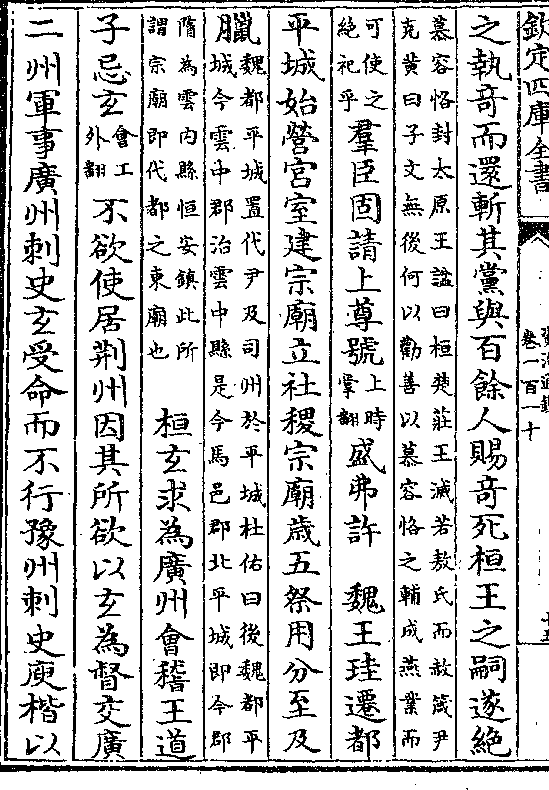 欽定四庫全書
卷一百一十
之執竒而還斬其黨與百餘人賜竒死桓王之嗣遂絶
慕容恪封太原王諡曰桓楚莊王滅若敖氏而赦箴尹
克黄曰子文無後何以勸善以慕容恪之輔成燕業而
可使之
絶祀乎
羣臣固請上尊號
上時
掌翻
盛弗許　魏王珪遷都
平城始營宫室建宗廟立社稷宗廟歲五祭用分至及
臘
魏都平城置代尹及司州於平城杜佑曰後魏都平
城今雲中郡治雲中縣是今馬邑郡北平城即今郡
隋為雲内縣恒安鎮此所
謂宗廟即代都之東廟也
桓玄求為廣州會稽王道
子忌玄
會工
外翻
不欲使居荆州因其所欲以玄為督交廣
二州軍事廣州刺史玄受命而不行豫州刺史庾楷以